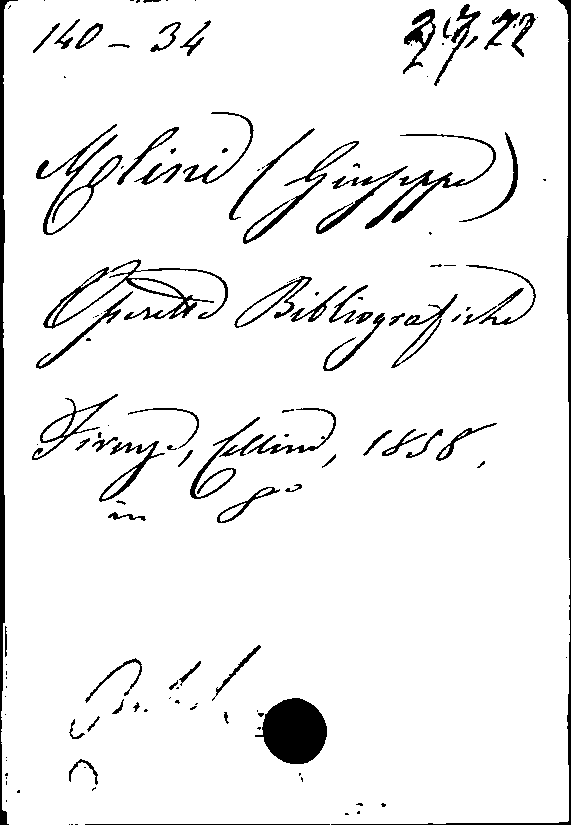 140 - 34
Molini (Giuseppe)
Operette Bibliografiche
Firenze, Cellini, 1858,
in 8°